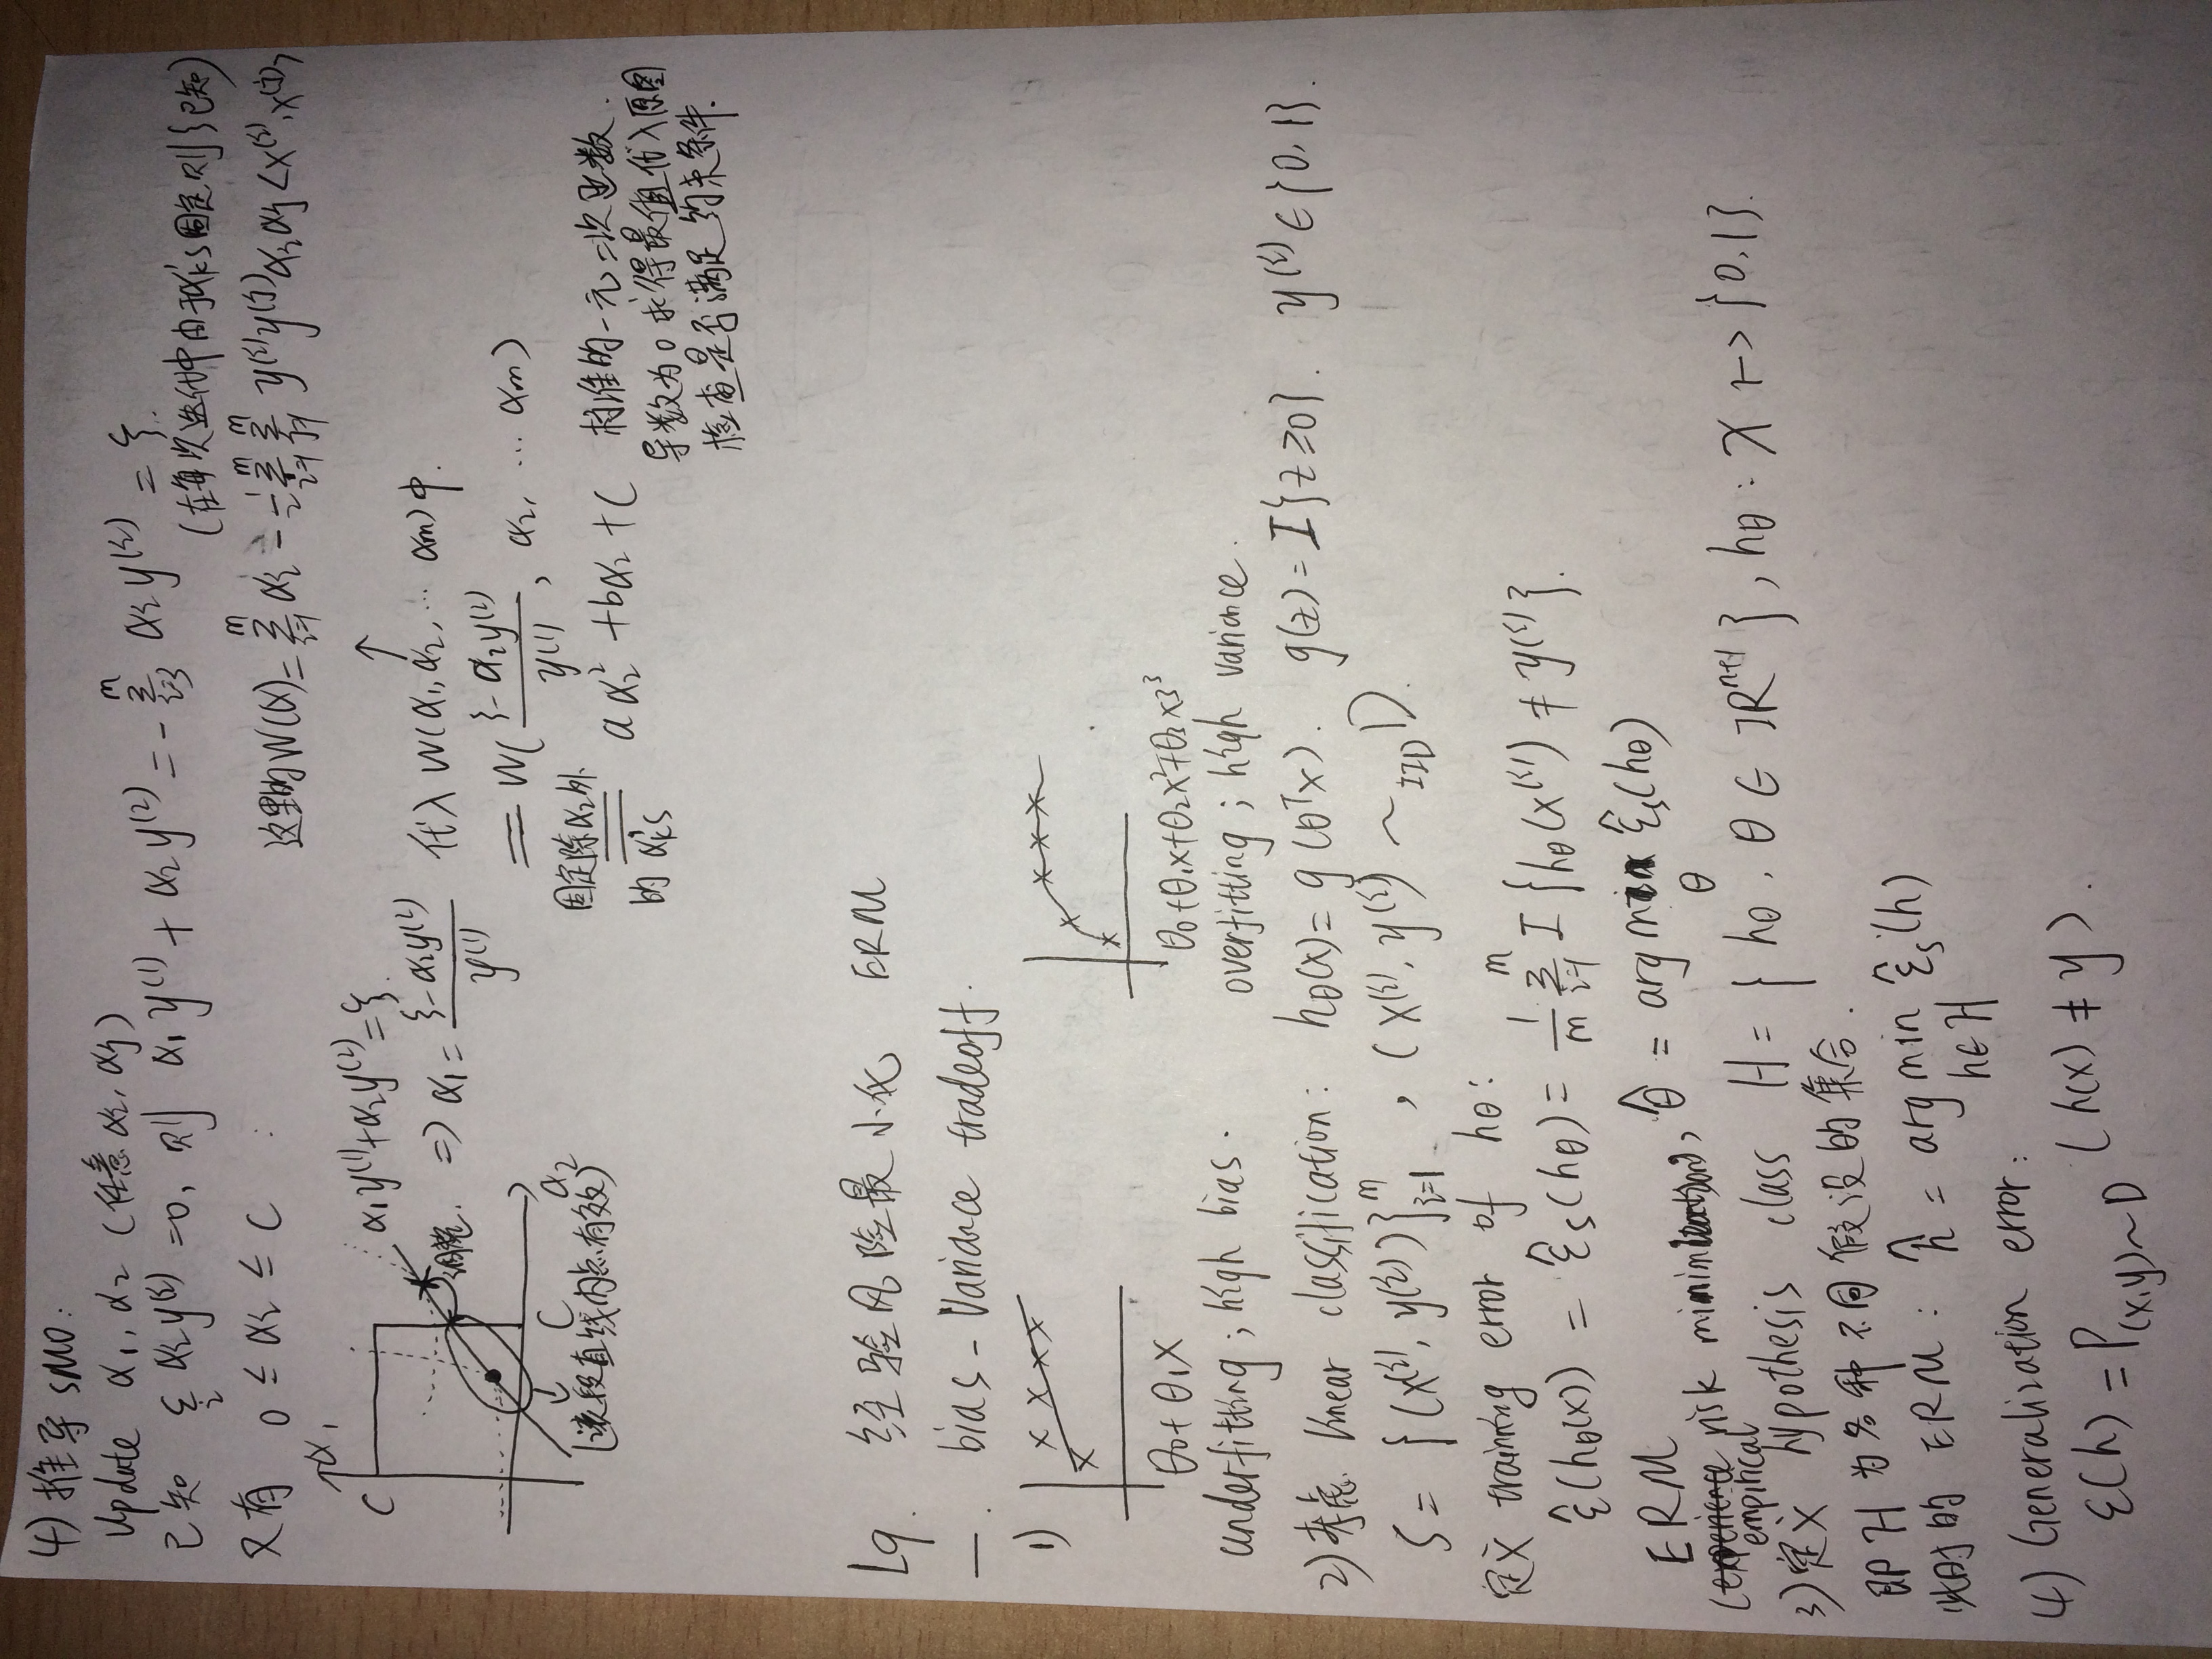 4) 推导 SMO:
Update α₁, α₂ (任意 αᵢ, αⱼ)
已知 Σᵢ αᵢy⁽ⁱ⁾ = 0, 则 α₁y⁽¹⁾ + α₂y⁽²⁾ = -Σᵢ₌₃ᵐ αᵢy⁽ⁱ⁾ = ξ.
(在每次迭代中由于αₖ's 固定则ξ已知)
又有 0 ≤ αᵢ ≤ C :
这里的W(α) = Σᵢ₌₁ᵐ αᵢ - 1/2 Σᵢ₌₁ᵐ Σⱼ₌₁ᵐ y⁽ⁱ⁾y⁽ʲ⁾αᵢαⱼ<x⁽ⁱ⁾, x⁽ʲ⁾>
α₁
C
α₁y⁽¹⁾+α₂y⁽²⁾=ξ.
调整. ⇒ α₁ = (ξ-α₂y⁽²⁾)/y⁽¹⁾ 代入 W(α₁, α₂, … αm) 中.
C α₂
(该段直线内点有效)
= W((ξ-α₂y⁽²⁾)/y⁽¹⁾, α₂, … αm)
固定除α₂外
的 αₖ's
= aα₂² + bα₂ + C 标准的一元二次函数.
导数为0求得最值代入原图
检查是否满足约束条件.
L9. 经验风险最小化 ERM
一. bias-Variance tradeoff.
1)
θ₀+θ₁x
θ₀+θ₁x+θ₂x²+θ₃x3³
underfitting; high bias.
overfitting; high variance.
2) 考虑 linear classification: hθ(x) = g(θᵀx). g(z) = I{z≥0}. y⁽ⁱ⁾∈{0,1}.
S = {(x⁽ⁱ⁾, y⁽ⁱ⁾)}ᵢ₌₁ᵐ, (x⁽ⁱ⁾, y⁽ⁱ⁾) ~IID D.
定义 training error of hθ:
ε̂(hθ(x)) = ε̂s(hθ) = 1/m Σᵢ₌₁ᵐ I{hθ(x⁽ⁱ⁾) ≠ y⁽ⁱ⁾}.
ERM
(experience risk minimization), θ̂ = arg min ε̂s(hθ)
empirical
θ
3) 定义 hypothesis class H = {hθ, θ∈ℝⁿ⁺¹}, hθ: X ↦ {0,1}.
即 H 为各种不同假设的集合.
此时的 ERM: ĥ = arg min ε̂s(h)
h∈H
4) Generalization error:
ε(h) = P(x,y)~D (h(x) ≠ y).